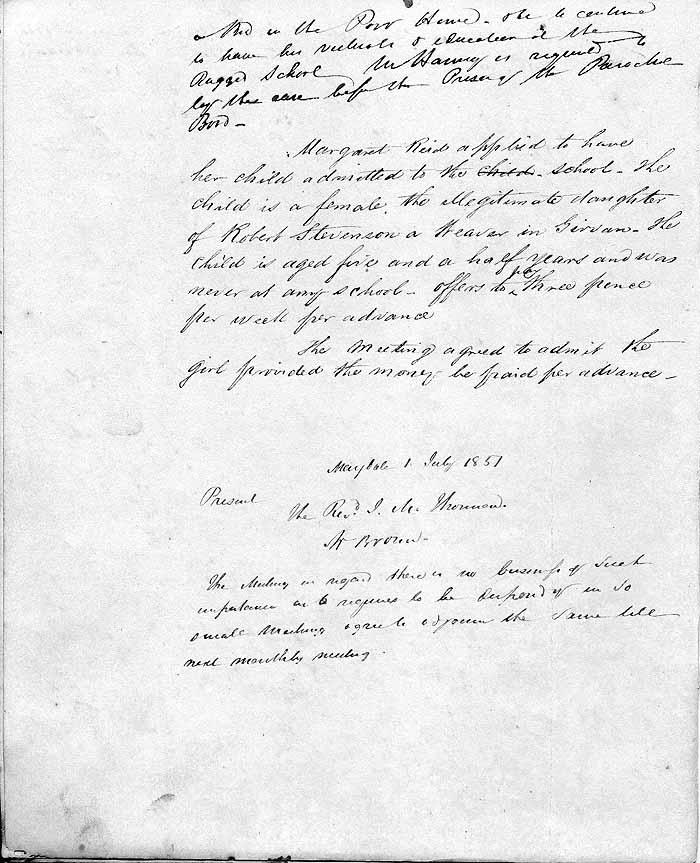 a Bed in the Poor House - she to continue
to have her victuals & education at the
Ragged School Mr Hannay is requested to
lay the case before the Preses of the Parochial
Bord -
Margaret Reid applied to have
her child admitted to the child - school - The
child is a female, the illegitimate daughter
of Robert Stevenson a Weaver in Girvan - The
child is aged five and a half years and was
never at any school - offers to pay Three pence
per week per advance
The Meeting agreed to admit the
Girl provided the money be paid per advance -
Maybole 1 July 1851
Present The Revd. J. Mc Thomson.
Mr Brown -
The Meeting in regard there is no business of such
importance as to require to be disposed of in so
small Meeting agree to adjourn the same till
next monthly meeting.